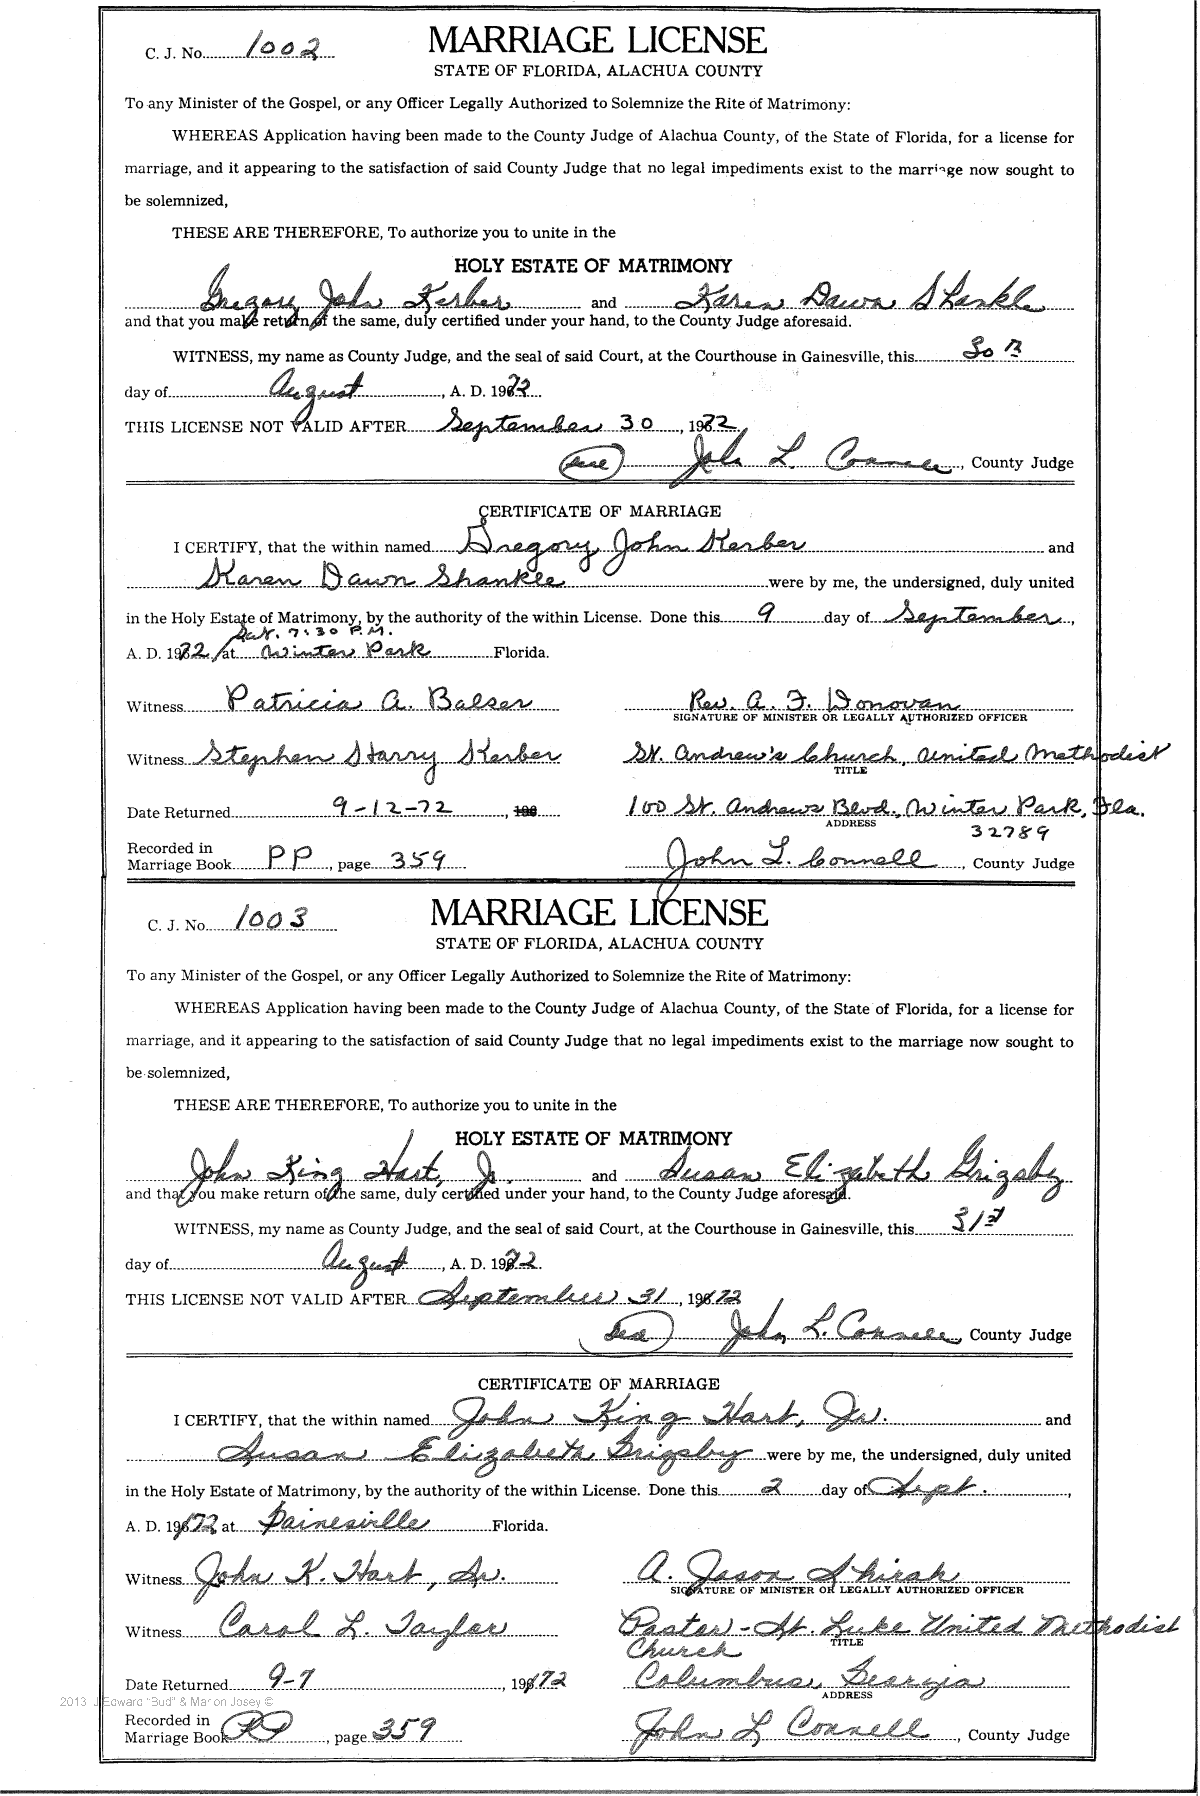 C. J. No. 1002
MARRIAGE LICENSE
STATE OF FLORIDA, ALACHUA COUNTY
To any Minister of the Gospel, or any Officer Legally Authorized to Solemnize the Rite of Matrimony:
WHEREAS Application having been made to the County Judge of Alachua County, of the State of Florida, for a license for
marriage, and it appearing to the satisfaction of said County Judge that no legal impediments exist to the marriage now sought to
be solemnized,
THESE ARE THEREFORE, To authorize you to unite in the
HOLY ESTATE OF MATRIMONY
Gregory John Kerber and Karen Dawn Shankle
and that you make return of the same, duly certified under your hand, to the County Judge aforesaid.
WITNESS, my name as County Judge, and the seal of said Court, at the Courthouse in Gainesville, this 30th
day of August, A. D. 1972
THIS LICENSE NOT VALID AFTER September 30, 1972
John L. Connell, County Judge
CERTIFICATE OF MARRIAGE
I CERTIFY, that the within named Gregory John Kerber and
Karen Dawn Shankle were by me, the undersigned, duly united
in the Holy Estate of Matrimony, by the authority of the within License. Done this 9 day of September,
Sat. 7:30 P.M.
A. D. 1972 at Winter Park Florida.
Witness Patricia A. Balser Rev. A. F. Donovan
SIGNATURE OF MINISTER OR LEGALLY AUTHORIZED OFFICER
Witness Stephen Starry Kerber St. Andrew's Church, United Methodist
TITLE
Date Returned 9-12-72, 100 St. Andrews Blvd., Winter Park, Fla.
ADDRESS 32789
Recorded in
Marriage Book PP, page 359 John L. Connell, County Judge
C. J. No. 1003
MARRIAGE LICENSE
STATE OF FLORIDA, ALACHUA COUNTY
To any Minister of the Gospel, or any Officer Legally Authorized to Solemnize the Rite of Matrimony:
WHEREAS Application having been made to the County Judge of Alachua County, of the State of Florida, for a license for
marriage, and it appearing to the satisfaction of said County Judge that no legal impediments exist to the marriage now sought to
be solemnized,
THESE ARE THEREFORE, To authorize you to unite in the
HOLY ESTATE OF MATRIMONY
John King Hart, Jr. and Susan Elizabeth Grigsby
and that you make return of the same, duly certified under your hand, to the County Judge aforesaid.
WITNESS, my name as County Judge, and the seal of said Court, at the Courthouse in Gainesville, this 31st
day of August, A. D. 1972.
THIS LICENSE NOT VALID AFTER September 31, 1972
John L. Connell, County Judge
CERTIFICATE OF MARRIAGE
I CERTIFY, that the within named John King Hart, Jr. and
Susan Elizabeth Grigsby were by me, the undersigned, duly united
in the Holy Estate of Matrimony, by the authority of the within License. Done this 2 day of Sept.,
A. D. 1972 at Gainesville Florida.
Witness John K. Hart, Sr. A. Jason Shirah
SIGNATURE OF MINISTER OR LEGALLY AUTHORIZED OFFICER
Witness Carol L. Taylor Pastor - St. Luke United Methodist
Church TITLE
Date Returned 9-7, 1972 Columbus, Georgia
ADDRESS
2013 J Edward "Bud" & Marion Josey ©
Recorded in
Marriage Book PP, page 359 John L. Connell, County Judge